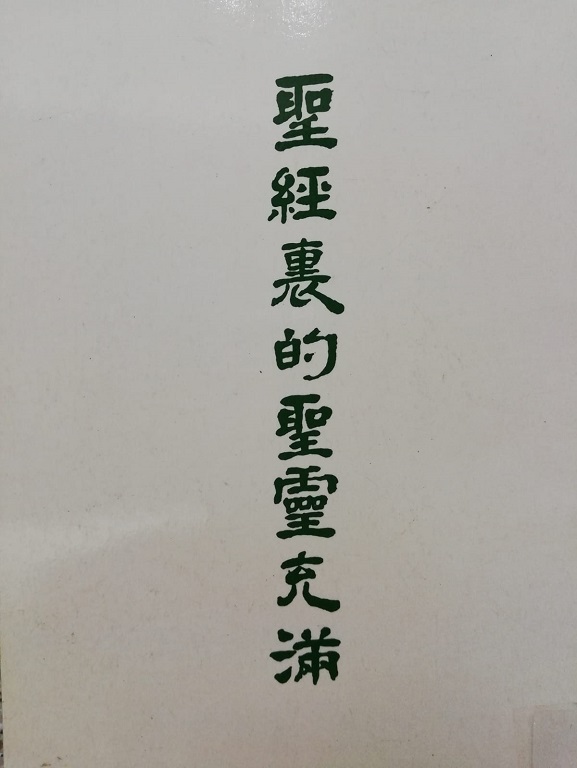 聖經裏的聖靈充滿